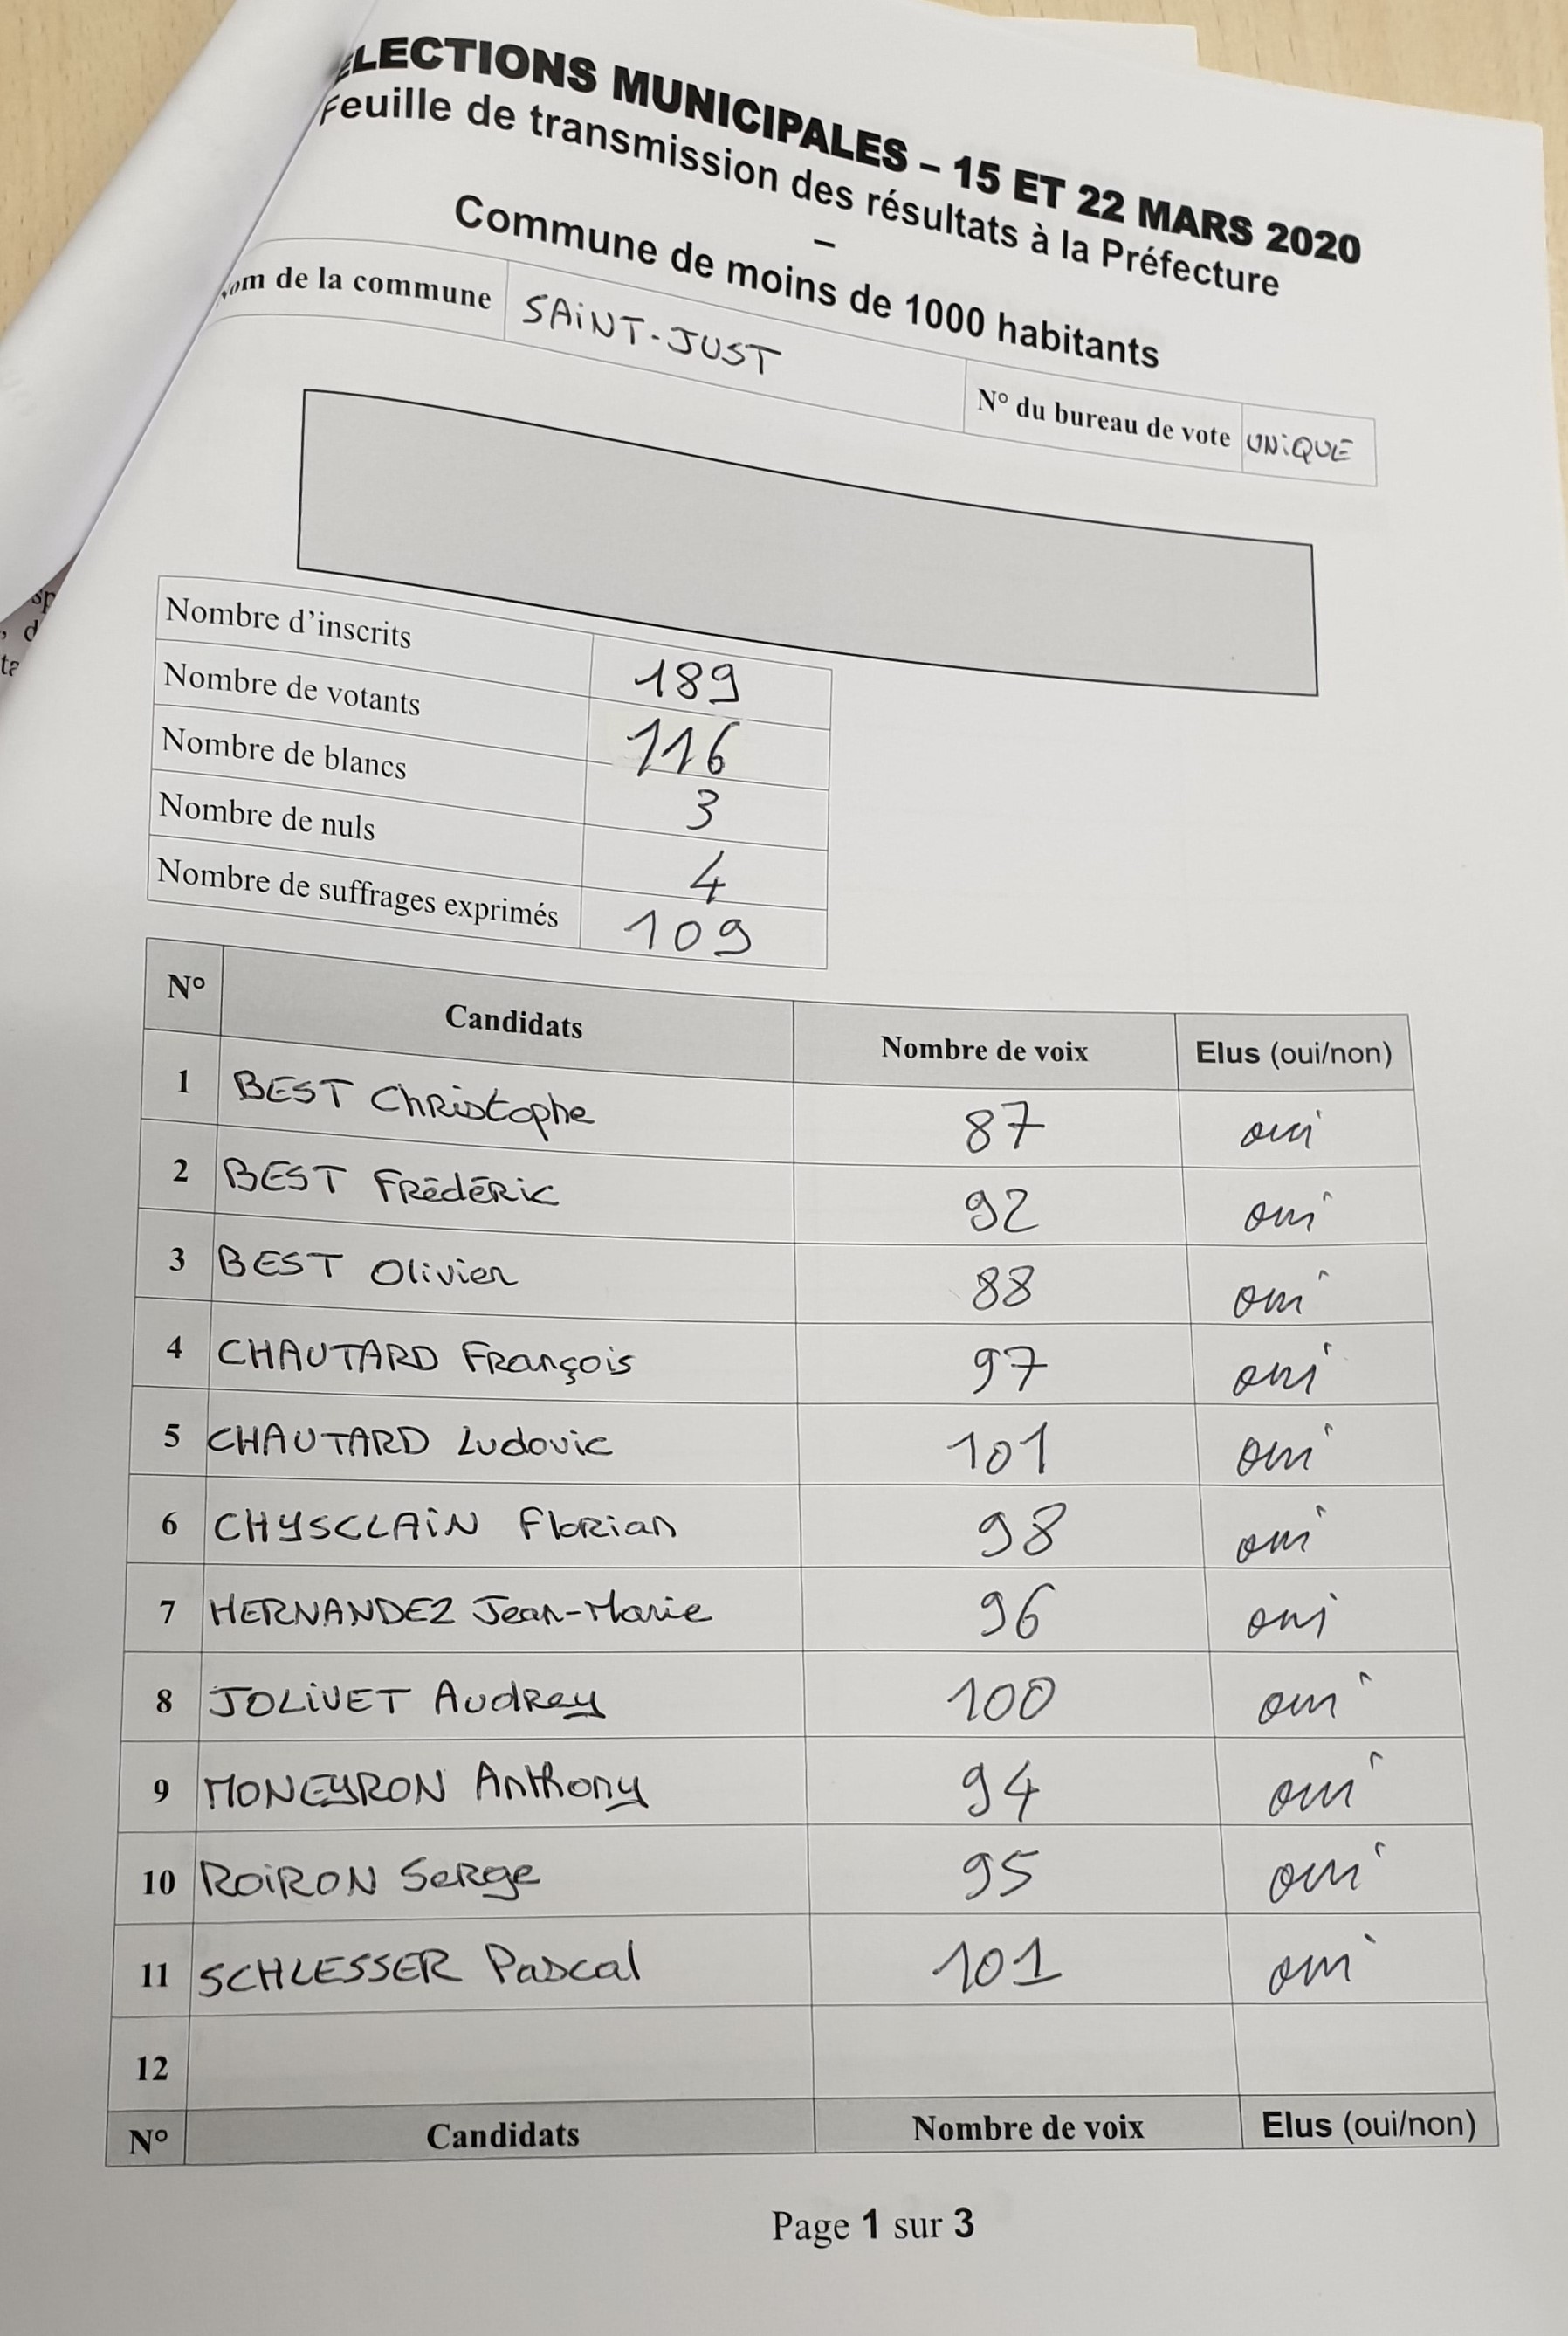 ELECTIONS MUNICIPALES – 15 ET 22 MARS 2020
Feuille de transmission des résultats à la Préfecture
–
Commune de moins de 1000 habitants
Nom de la commune SAINT-JUST N° du bureau de vote UNIQUE
Nombre d'inscrits 189
Nombre de votants 116
Nombre de blancs 3
Nombre de nuls 4
Nombre de suffrages exprimés 109
N° Candidats Nombre de voix Elus (oui/non)
1 BEST Christophe 87 oui
2 BEST Frédéric 92 oui
3 BEST Olivier 88 oui
4 CHAUTARD François 97 oui
5 CHAUTARD Ludovic 101 oui
6 CHYSCLAIN Florian 98 oui
7 HERNANDEZ Jean-Marie 96 oui
8 JOLIVET Audrey 100 oui
9 MONEYRON Anthony 94 oui
10 ROIRON Serge 95 oui
11 SCHLESSER Pascal 101 oui
12
N° Candidats Nombre de voix Elus (oui/non)
Page 1 sur 3